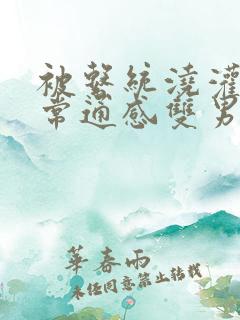 被繫統澆灌
常通感雙男
華春雨
未經同意禁止轉載